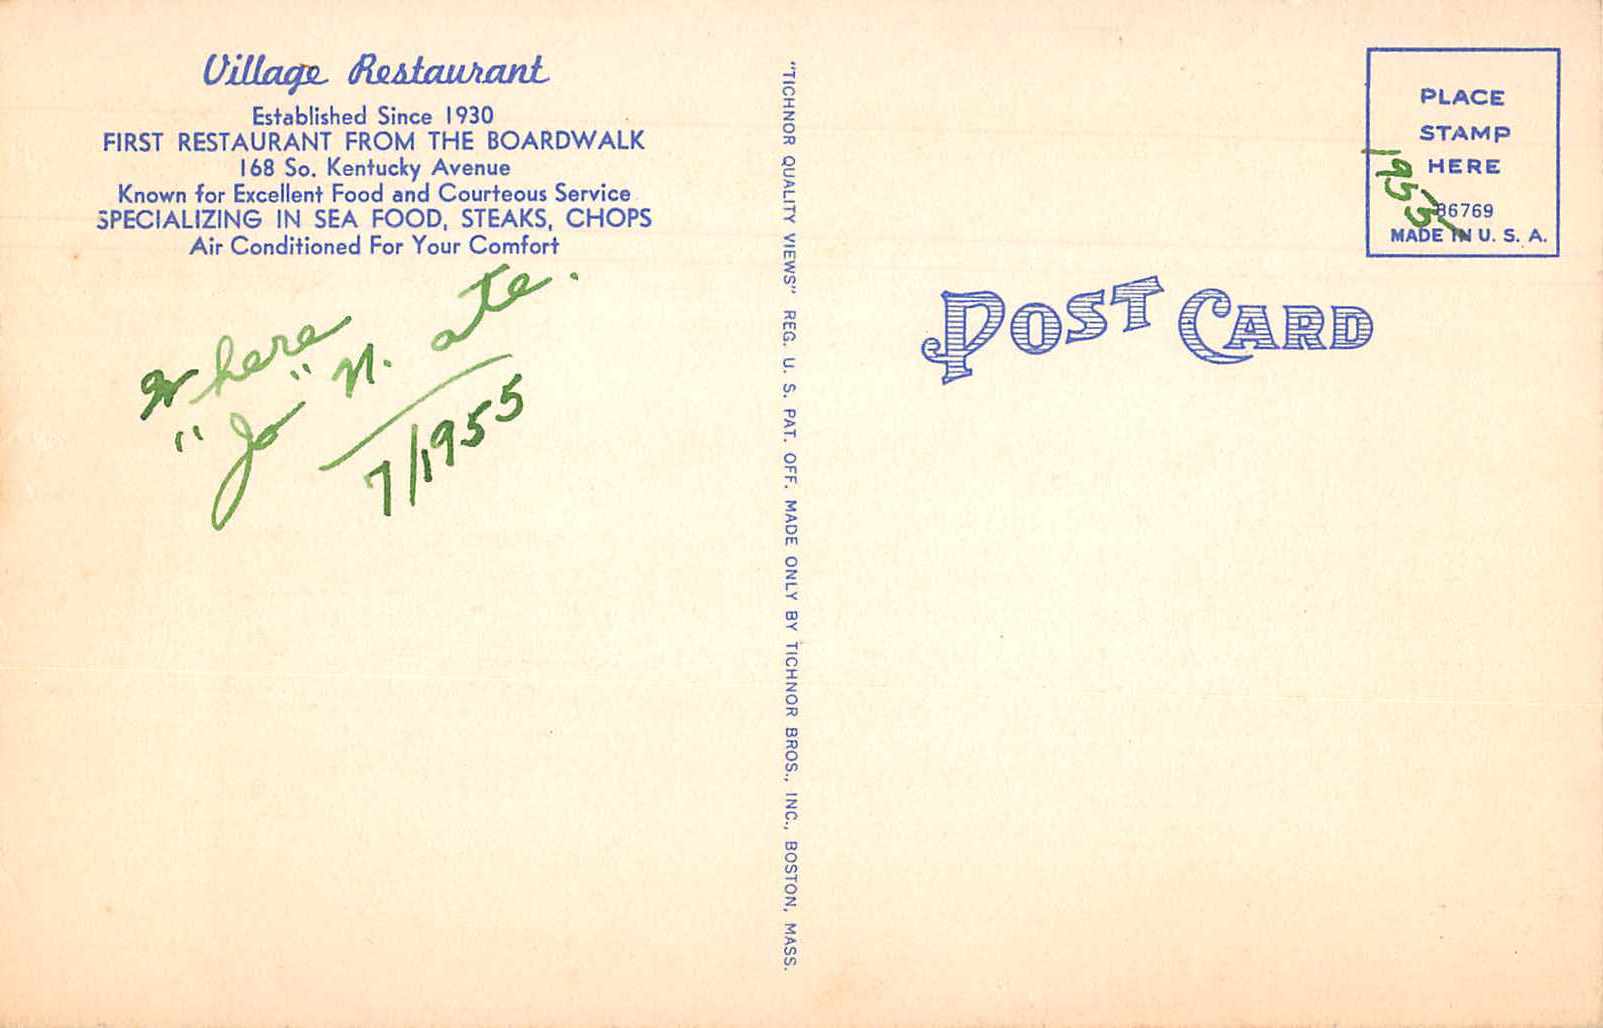 Village Restaurant
Established Since 1930
FIRST RESTAURANT FROM THE BOARDWALK
168 So. Kentucky Avenue
Known for Excellent Food and Courteous Service
SPECIALIZING IN SEA FOOD, STEAKS, CHOPS
Air Conditioned For Your Comfort
Where
"Jo" N. ate.
7/1955
"TICHNOR QUALITY VIEWS" REG. U. S. PAT. OFF. MADE ONLY BY TICHNOR BROS., INC., BOSTON, MASS.
PLACE
STAMP
HERE
1955
86769
MADE IN U. S. A.
POST CARD